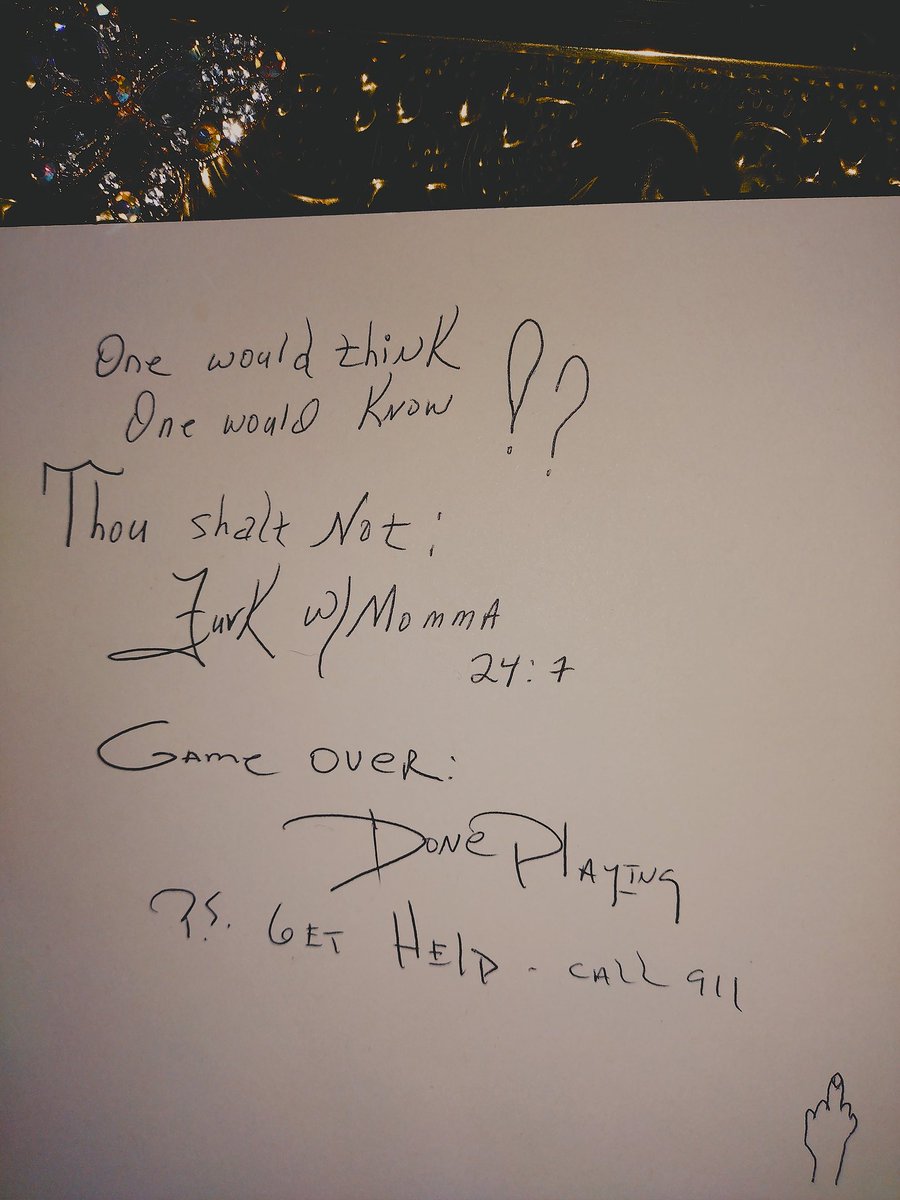 One would think !?
One would Know
Thou shalt Not:
Furk w/ Momma
24:7
Game over:
Done Playing
P.S. Get Help - call 911